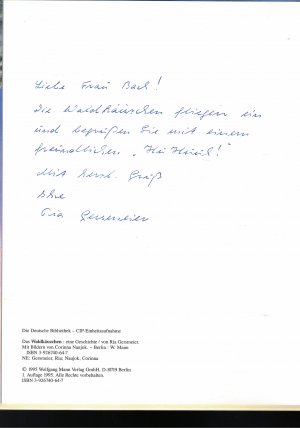 Liebe Frau Bach!
Die Waldkäuzchen fliegen ein
und begrüßen Sie mit einem
freundlichen „Hui Huuh!"
Mit herzl. Gruß
Ihre
Ria Gersmeier
Die Deutsche Bibliothek – CIP-Einheitsaufnahme
Das Waldkäuzchen : eine Geschichte / von Ria Gersmeier.
Mit Bildern von Corinna Naujok. – Berlin : W. Mann
ISBN 3-926740-64-7
NE: Gersmeier, Ria; Naujok, Corinna
© 1995 Wolfgang Mann Verlag GmbH, D-10719 Berlin
1. Auflage 1995. Alle Rechte vorbehalten.
ISBN 3-926740-64-7